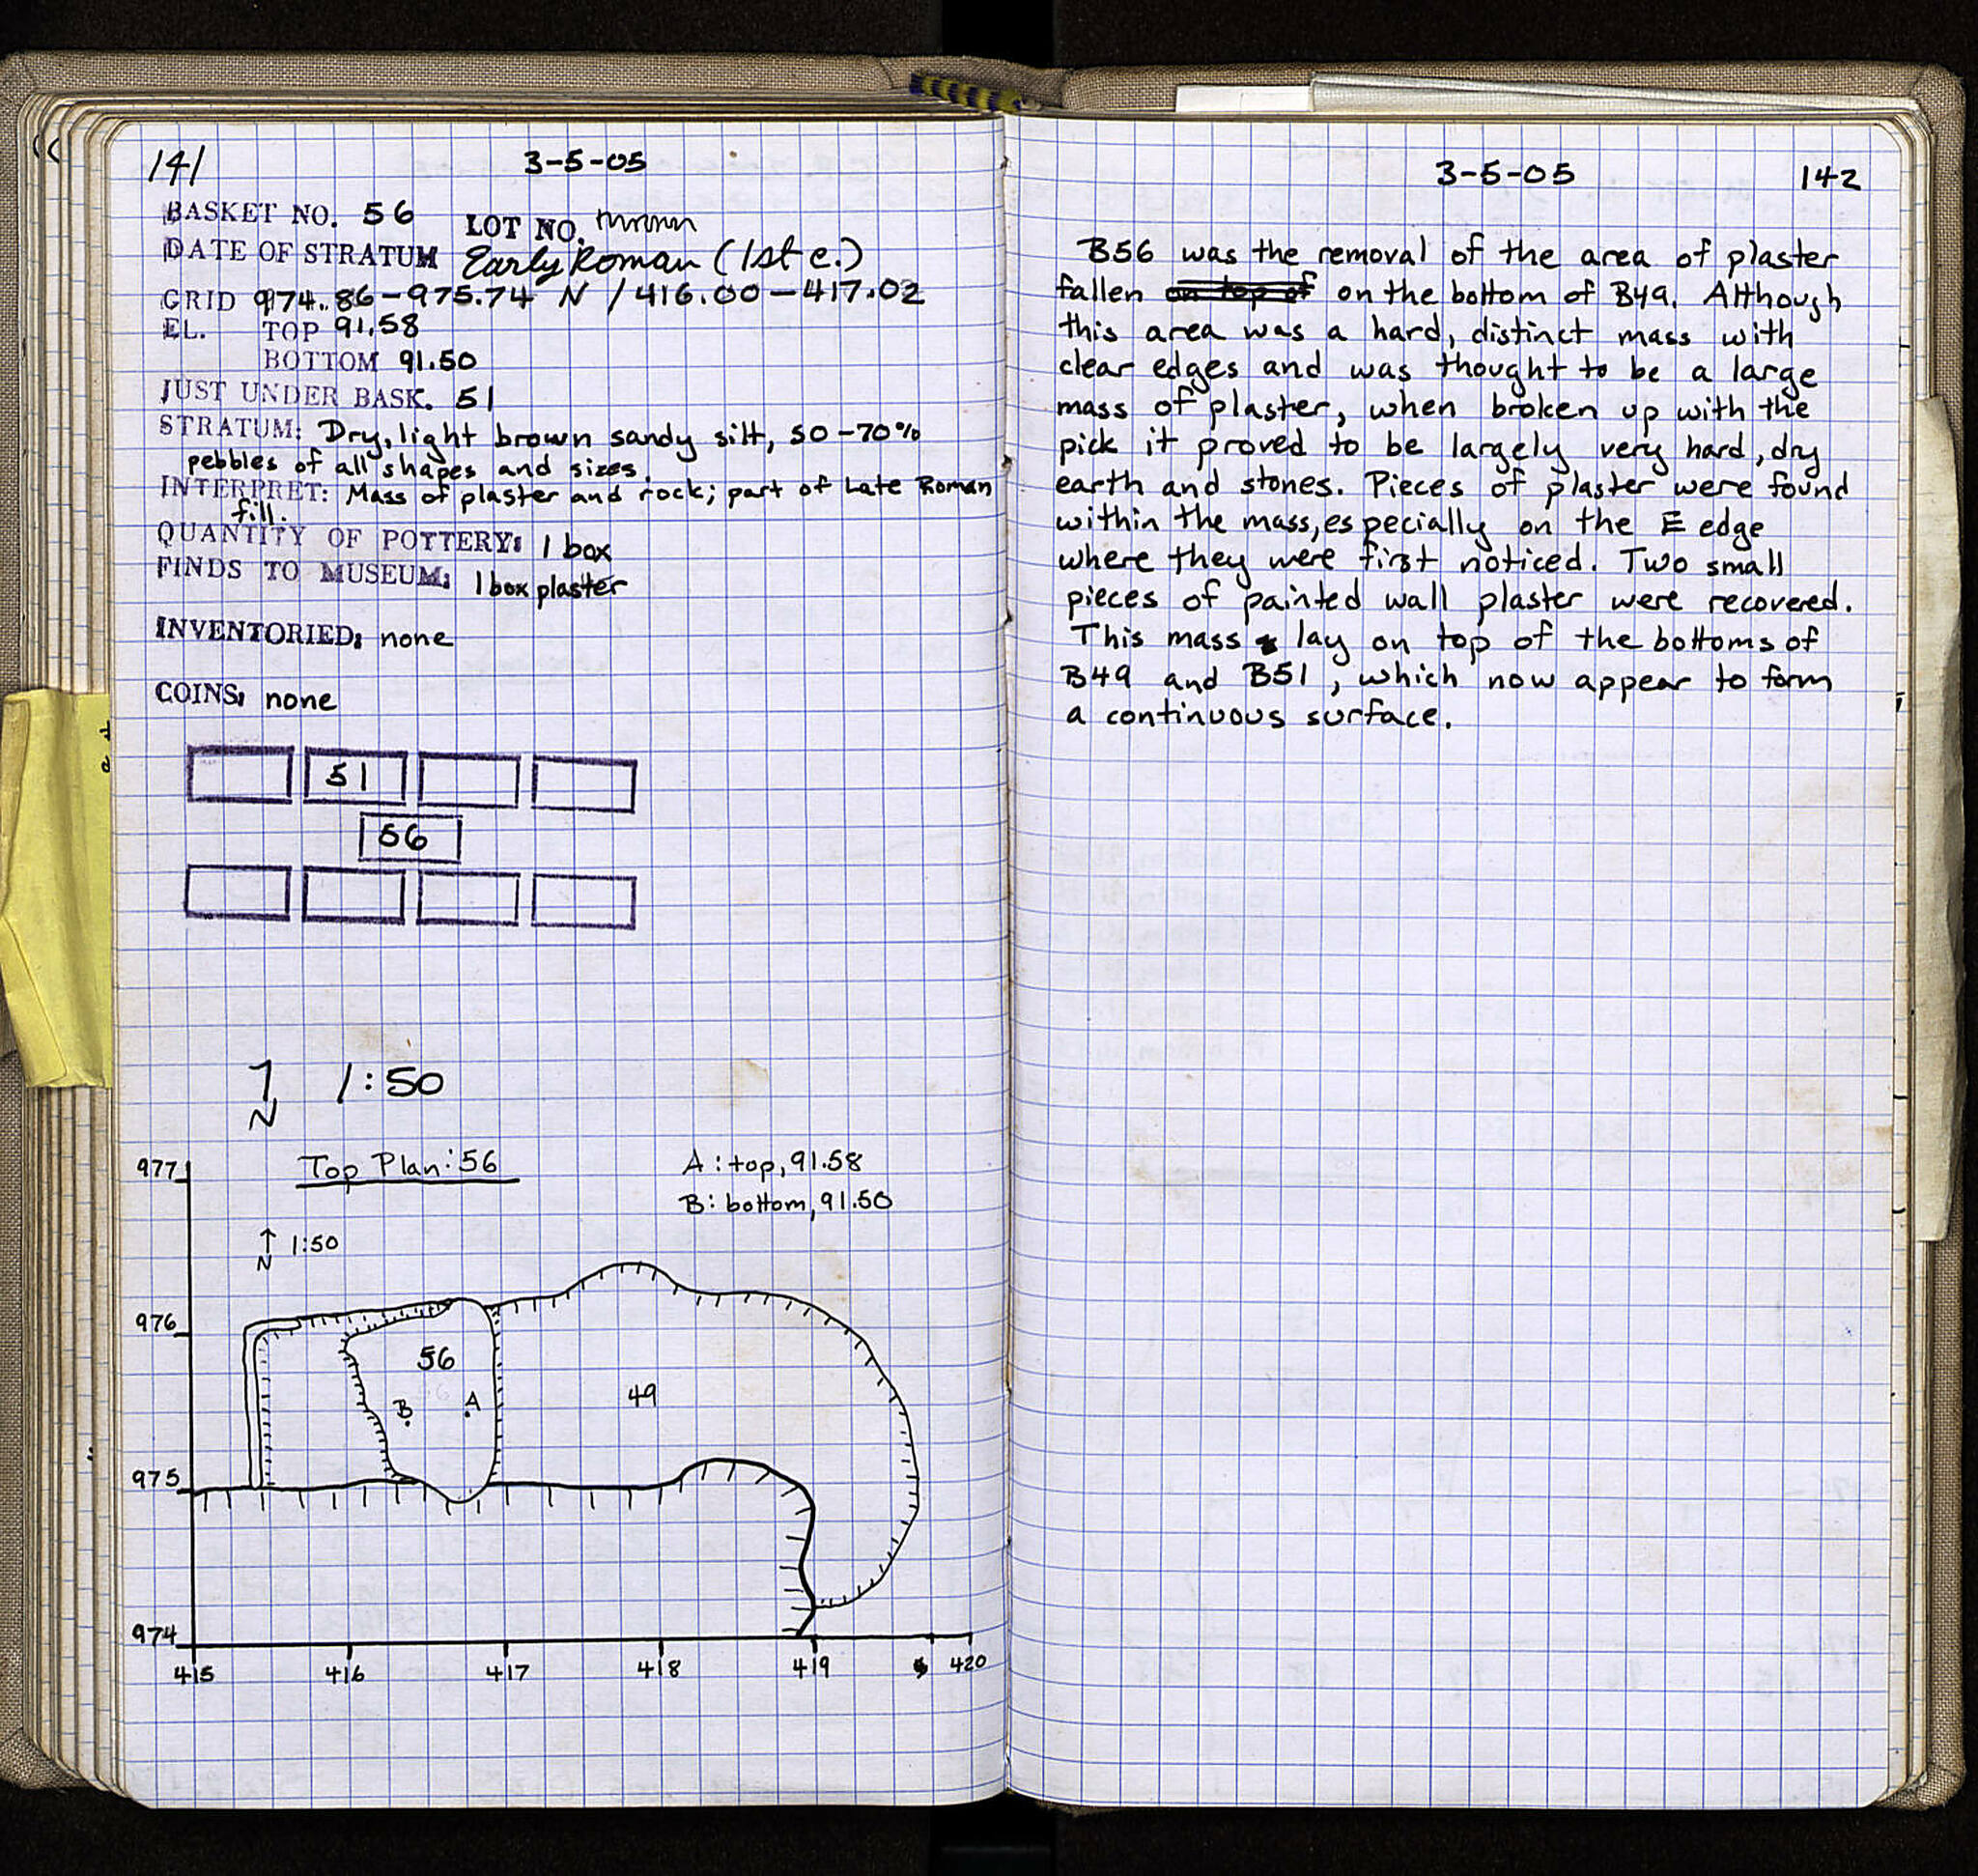 141
3-5-05
BASKET NO. 56 LOT NO. thrown
DATE OF STRATUM Early Roman (1st c.)
GRID 974.86-975.74 N / 416.00-417.02
EL. TOP 91.58
BOTTOM 91.50
JUST UNDER BASK. 51
STRATUM: Dry, light brown sandy silt, 50-70%
pebbles of all shapes and sizes.
INTERPRET: Mass of plaster and rock; part of Late Roman
fill.
QUANTITY OF POTTERY: 1 box
FINDS TO MUSEUM: 1 box plaster
INVENTORIED: none
COINS: none
51
56
N 1:50
Top Plan: 56
A: top, 91.58
B: bottom, 91.50
N 1:50
977
976
975
974
56
B A
49
415 416 417 418 419 420
3-5-05 142
B56 was the removal of the area of plaster
fallen on top of on the bottom of B49. Although
this area was a hard, distinct mass with
clear edges and was thought to be a large
mass of plaster, when broken up with the
pick it proved to be largely very hard, dry
earth and stones. Pieces of plaster were found
within the mass, especially on the E edge
where they were first noticed. Two small
pieces of painted wall plaster were recovered.
This mass lay on top of the bottoms of
B49 and B51, which now appear to form
a continuous surface.